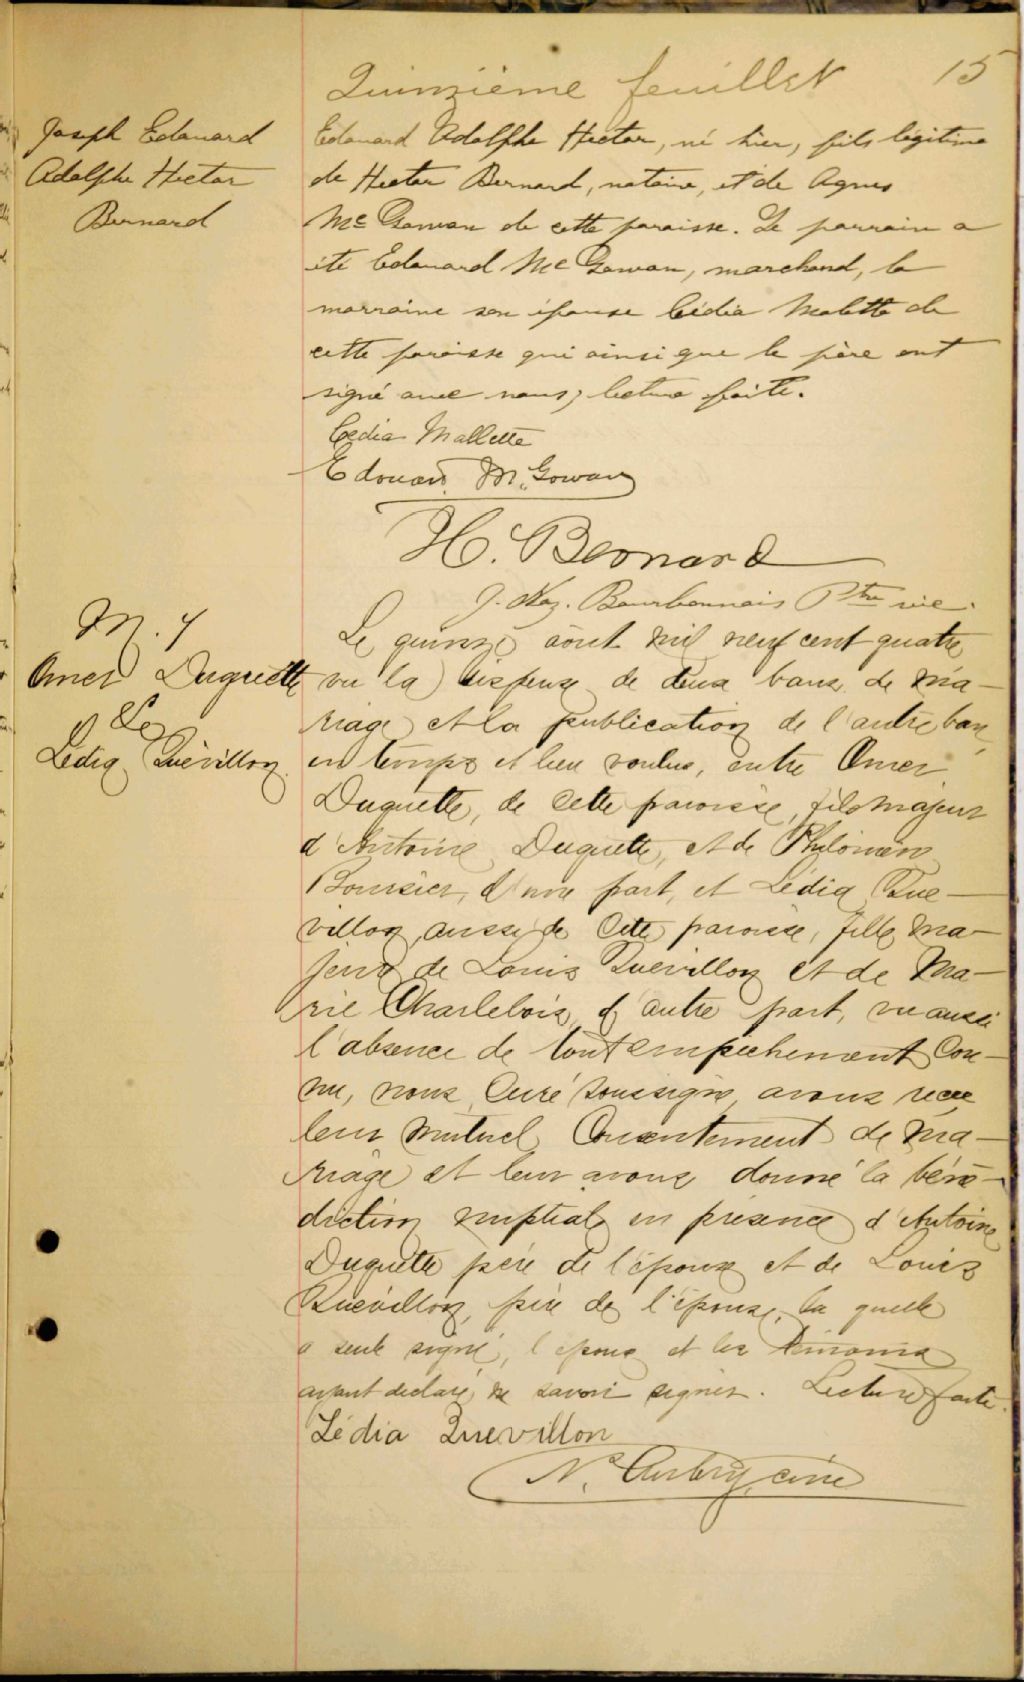 Quinzième feuillet 15
Joseph Edouard
Adolphe Hector
Bernard
Edouard Adolphe Hector, né hier, fils légitime
de Hector Bernard, notaire, et de Agnes
Mc Gowan de cette paroisse. Le parrain a
été Edouard Mc Gowan, marchand, la
marraine son épouse Cédia Malette de
cette paroisse qui ainsi que le père ont
signé avec nous; lecture faite.
Cédia Mallette
Edouard McGowan
H. Bernard
J. Naz. Bourbonnais Ptre vic.
M. 7
Omer Duquette
&
Lédia Quévillon
Le quinze août mil neuf cent quatre
vu la dispense de deux bans de ma-
riage et la publication de l'autre ban
en temps et lieu voulus, entre Omer
Duquette, de cette paroisse, fils majeur
d'Antoine Duquette, et de Philomène
Boursier, d'une part, et Lédia Què-
villon, aussi de cette paroisse, fille ma-
jeure de Louis Quévillon et de Ma-
rie Charlebois, d'autre part, vu aussi
l'absence de tout empêchement con-
nu, nous, Curé soussigné, avons reçu
leur mutuel Consentement de ma-
riage et leur avons donné la béné-
diction nuptiale en présence d'Antoine
Duquette père de l'époux et de Louis
Quévillon, père de l'épouse, la quelle
a seule signé, l'époux et les témoins
ayant déclaré ne savoir signer. Lecture faite.
Lédia Quevillon
N. Aubry, curé